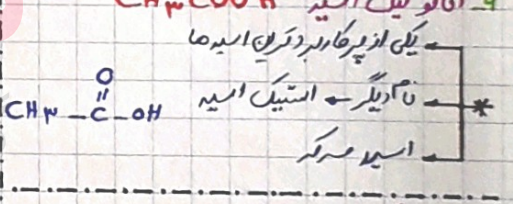 ۹- اتانوئیک اسید CH۳COOH
یکی از پرکاربردترین اسیدها
نام دیگر ← استیک اسید
اسید سرکه
O
CH۳ - C - OH